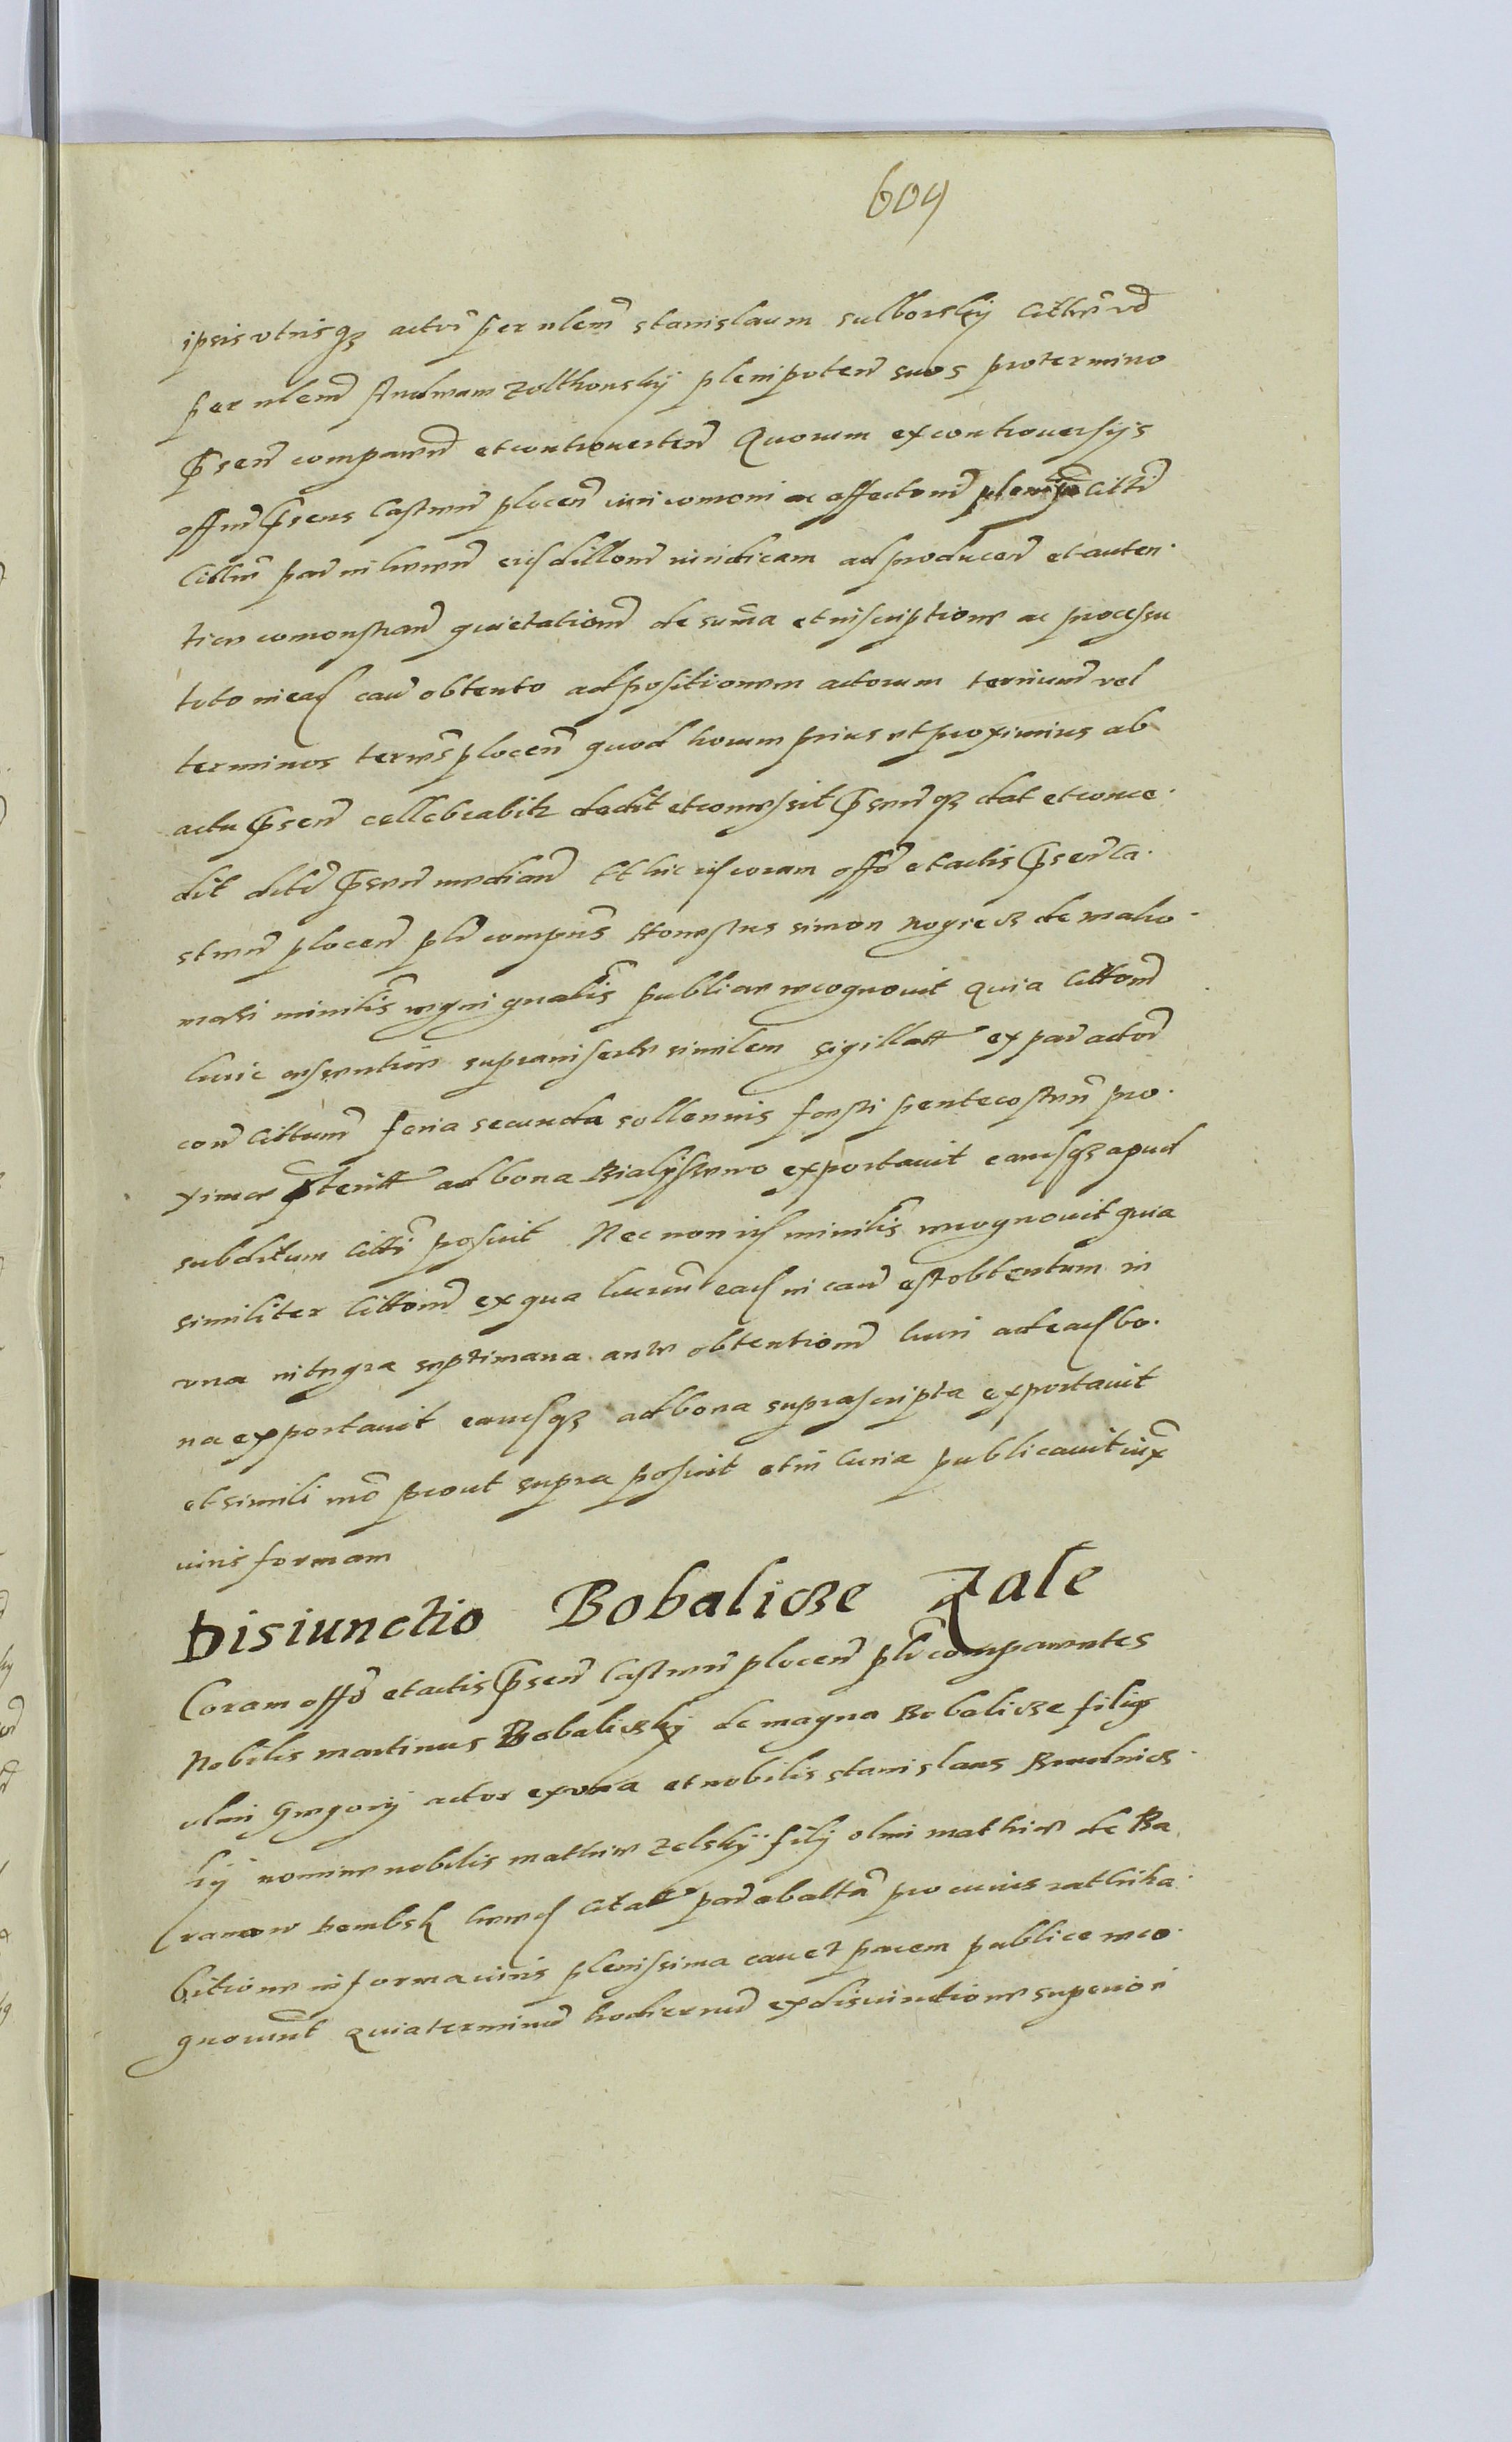 609
ipsis utrisq3 actor per nlem Stanislaum Sulborskij Citt vo
per nlem Andream Zolthowskij plenipoten suos pro termino
Psen comparen et controverten Quorum ex controuersijs
offm Psens Castren plocen iuri comoni ac affectom Citti
Citt par in eisdem Cittom iuridicam ad producen et auten
tice comonstran quietationem de suma et inscriptione ac processu
toto in ead cau obtento ad positionem actorum terrium vel
terminos terres plocen quod horum prius ut proximius ab
actu Psen cellebrabitr dedit et concessit Psenq3 dat et conce
dit dile Psen median Et hic id coram offo et actis Psen Ca
stren plocen plr comprns Honestus Simon Nogiecz de Maho
mini minilis regni gnalis publice recognouit Quia Cittom
huic insertive suprainserte similem sigillatt ex par actor
con Cittum feria secunda sollemnis festi pentecosten pro
xime pterit ad bona Bialyssewo exportauit eamq3 apud
subditum Citti posuit Nec non id minilis recognouit quia
similiter Cittom ex qua lucrum ead in cau est obtentum in
una integra septimana ante obtentiom lucri ad ead bo
na exportauit eamq3 ad bona suprascripta exportauit
et simili mo prout supra posuit et in curia publicauit iux
iuris formam
Disiunctio Bobalicze Zale
Coram offo et actis Psen Castren plocen plr comparentes
Nobilis Martinus Bobaliczkij de magna Bobalicze filig
olim Gregorij actor ex una et nobilis Stanislaus
kij nomine nobilis Mathie Zelskij filij olim Mathie de Ba
ranow Citatt par ab altera pro cuius rathiha
bitione in forma iuris plenissima cauet parem publice reco
gnouernt Quia terminum hodiernum ex disiunctione superiori